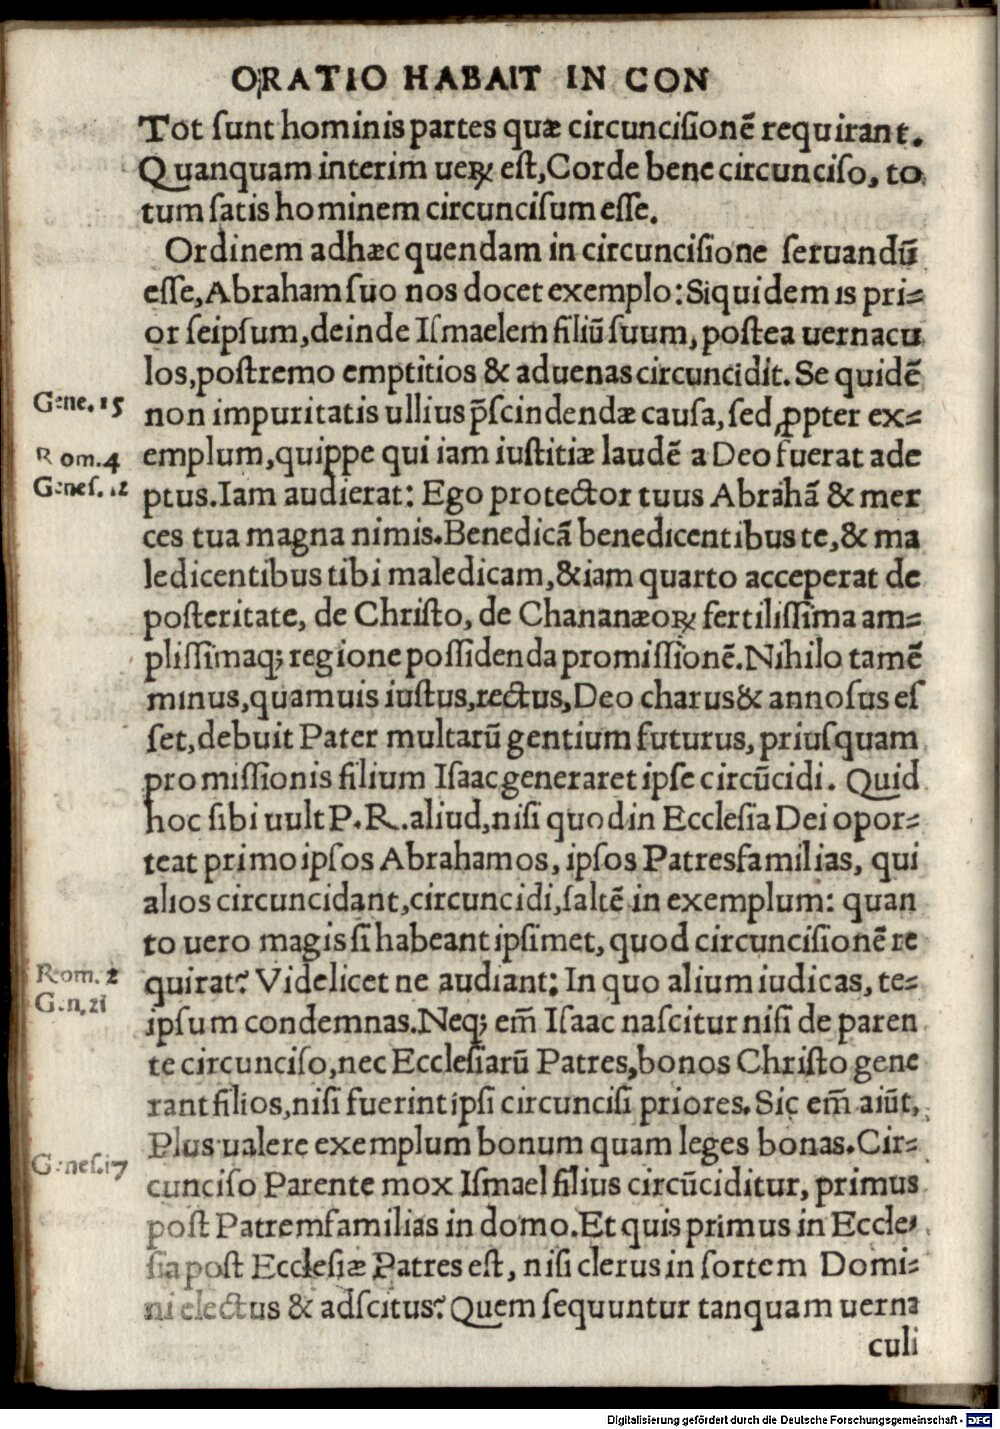 ORATIO HABAIT IN CON
Tot sunt hominis partes quæ circuncisionē requirant.
Quanquam interim ueꝝ est, Corde bene circunciso, to
tum satis hominem circuncisum esse.
Ordinem adhæc quendam in circuncisione seruandū
esse, Abraham suo nos docet exemplo: Siquidem is pri⸗
or seipsum, deinde Ismaelem filiū suum, postea uernacu
los, postremo emptitios & aduenas circuncidit. Se quidē
Gene. 15
non impuritatis ullius p̄scindendæ causa, sed ꝓpter ex⸗
Rom. 4
emplum, quippe qui iam iustitiæ laudē a Deo fuerat ade
Genes. 12
ptus. Iam audierat: Ego protector tuus Abrahā & mer
ces tua magna nimis. Benedicā benedicentibus te, & ma
ledicentibus tibi maledicam, & iam quarto acceperat de
posteritate, de Christo, de Chananæoꝝ fertilissima am⸗
plissimaq; regione possidenda promissionē. Nihilo tamē
minus, quamuis iustus, rectus, Deo charus & annosus es
set, debuit Pater multarū gentium futurus, priusquam
promissionis filium Isaac generaret ipse circūcidi. Quid
hoc sibi uult P. R. aliud, nisi quod in Ecclesia Dei opor⸗
teat primo ipsos Abrahamos, ipsos Patresfamilias, qui
alios circuncidant, circuncidi, saltē in exemplum: quan
to uero magis si habeant ipsimet, quod circuncisionē re
Rom. 2
quirat? Videlicet ne audiant: In quo alium iudicas, te⸗
Gen. 21
ipsum condemnas. Neq; em̄ Isaac nascitur nisi de paren
te circunciso, nec Ecclesiarū Patres, bonos Christo gene
rant filios, nisi fuerint ipsi circuncisi priores. Sic em̄ aiūt,
Plus ualere exemplum bonum quam leges bonas. Cir⸗
Genes. 17
cunciso Parente mox Ismael filius circūciditur, primus
post Patremfamilias in domo. Et quis primus in Eccle⸗
sia post Ecclesiæ Patres est, nisi clerus in sortem Domi⸗
ni electus & adscitus? Quem sequuntur tanquam uerna
culi
Digitalisierung gefördert durch die Deutsche Forschungsgemeinschaft - DFG